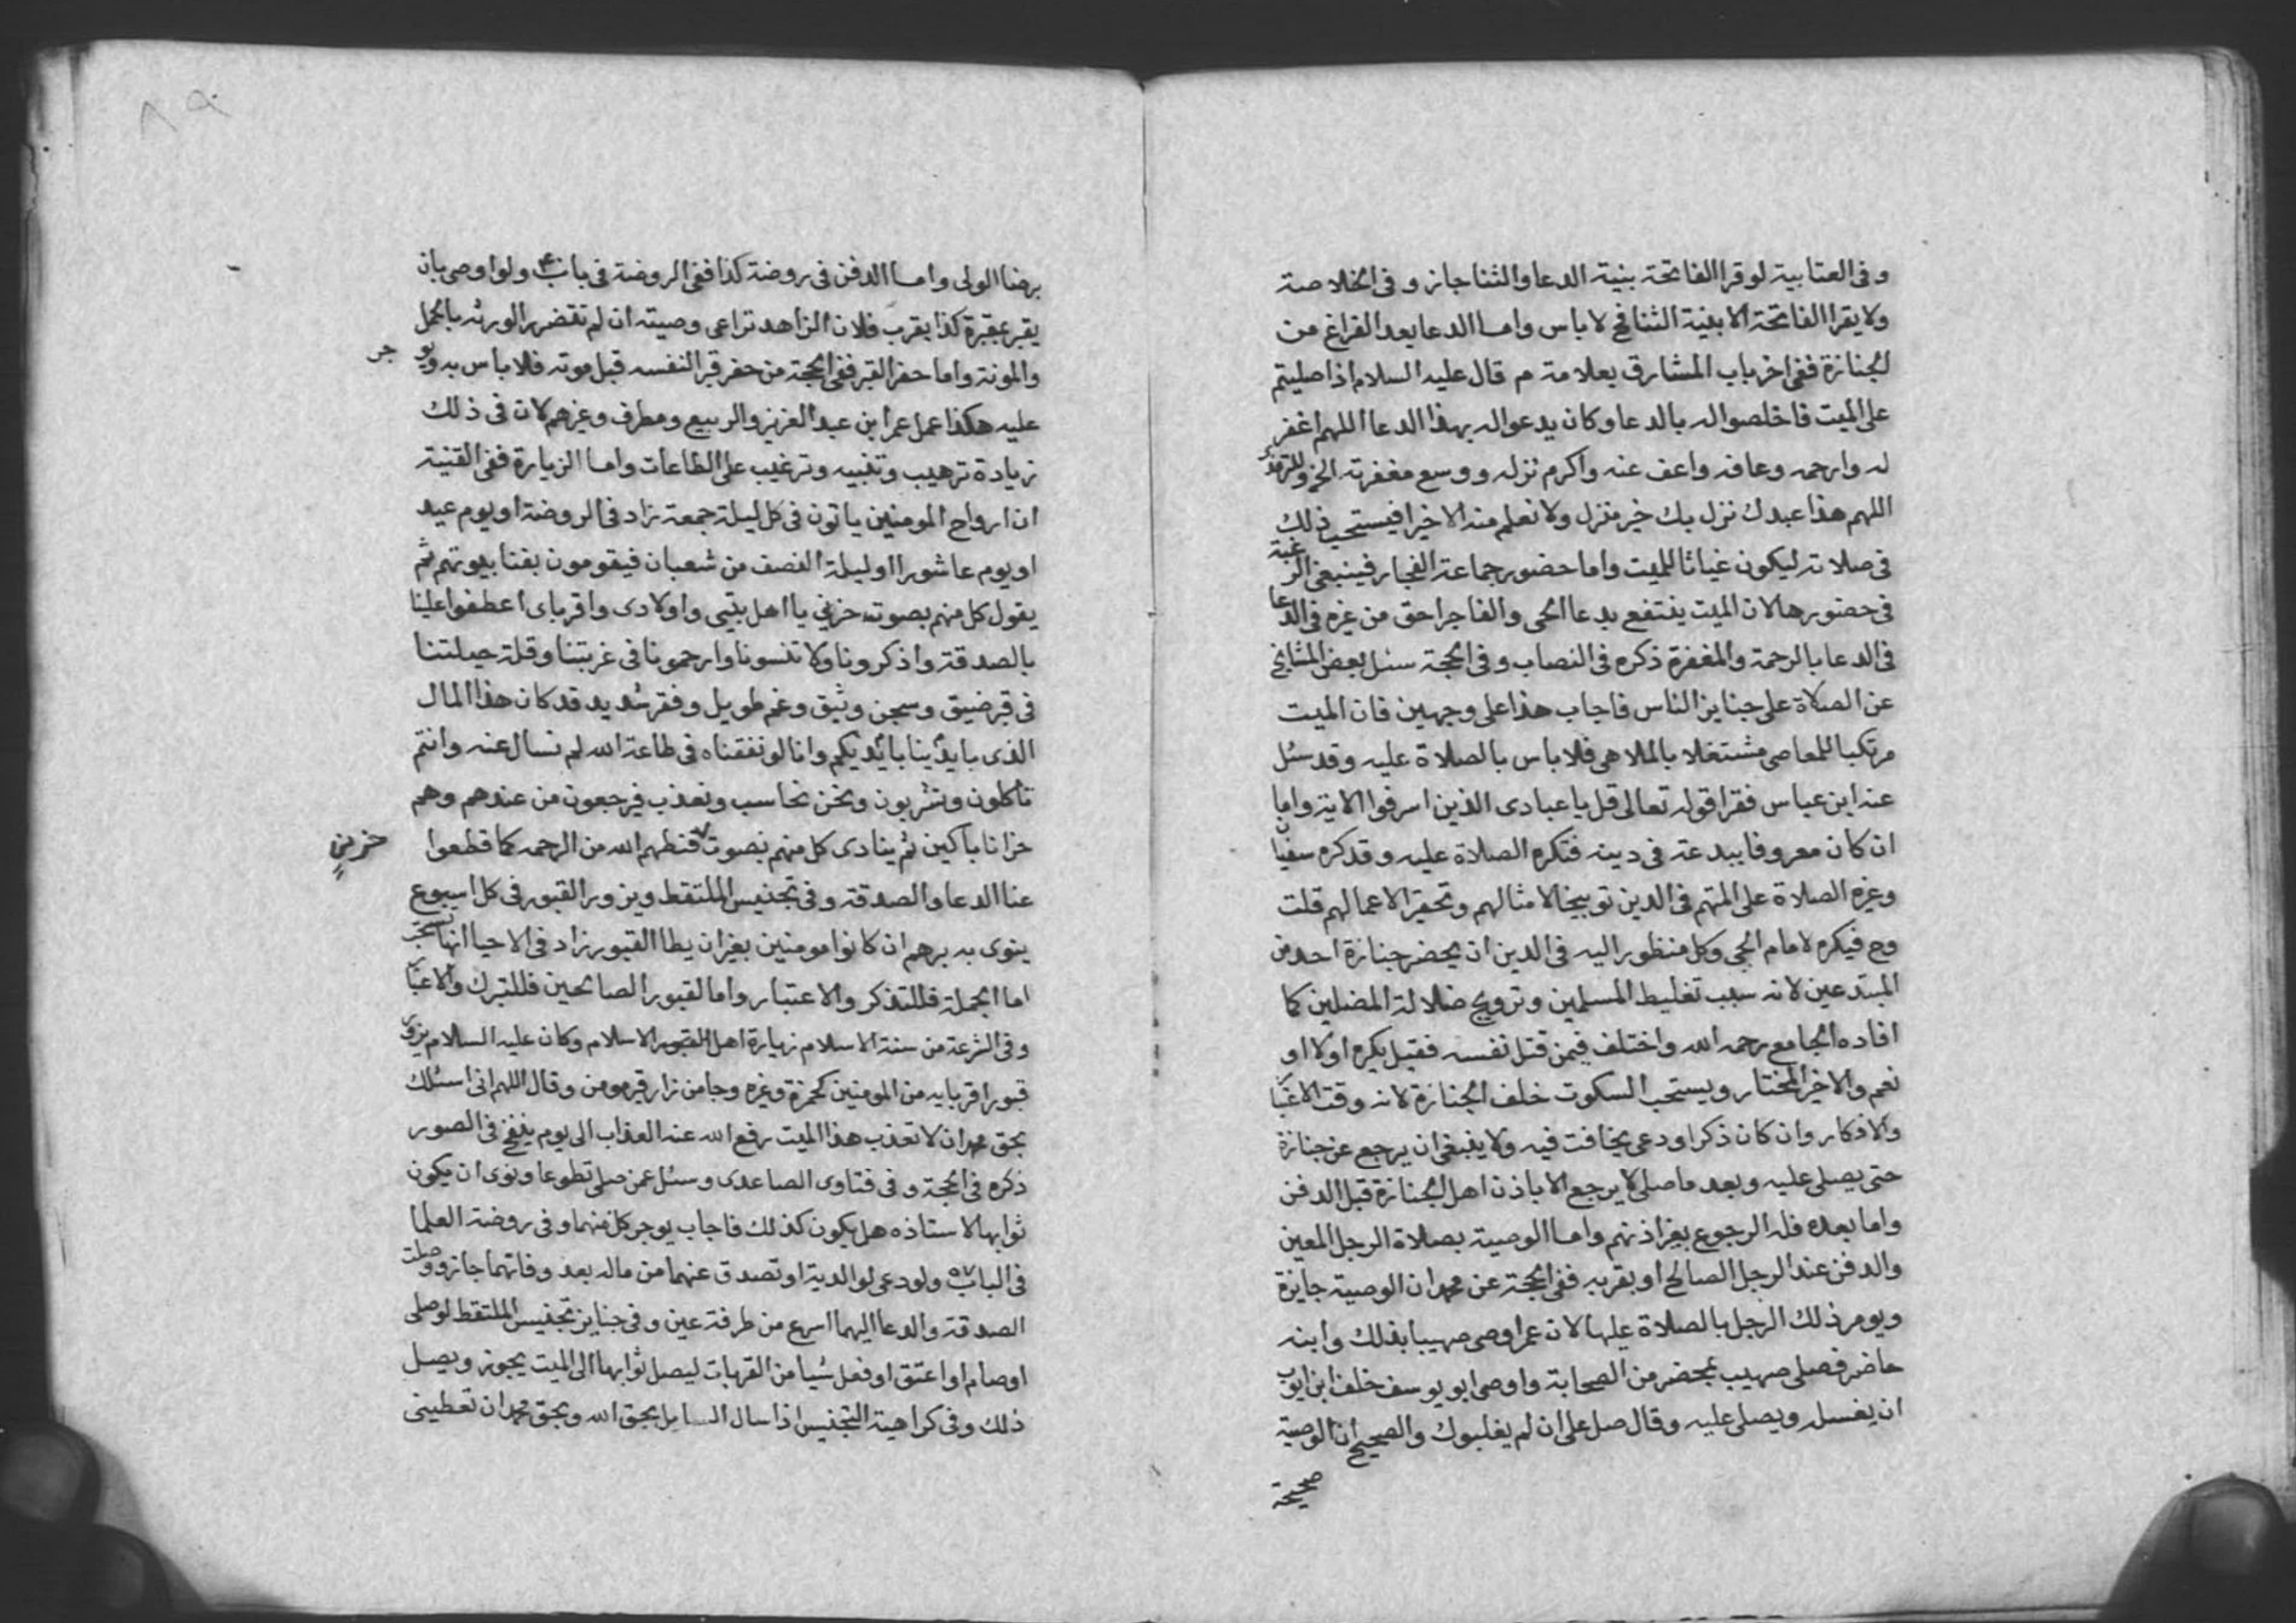 وفى العتابية لوقرا الفاتحة بنية الدعا والثنا جاز وفى الخلاصة
ولا يقرا الفاتحة الا بنية الثنا فح لا باس واما الدعا بعد الفراغ من
الجنازة ففى اخر باب المشارق بعلامة م قال عليه السلام اذا صليتم
على الميت فاخلصوا له بالدعا وكان يدعوا له بهذا الدعا اللهم اغفر
له وارحمه وعافه واعف عنه واكرم نزله ووسع مغفرته الخ
اللهم هذا عبدك نزل بك خير منزل ولا نعلم منه الا خيرا فيستحب ذلك
فى صلاته ليكون غياثا للميت واما حضور جماعة الفجار فينبغى الرغبة
فى حضورها لان الميت ينتفع بدعا الحى والفاجر احق من غيره فى الدعا
فى الدعا بالرحمة والمغفرة ذكره فى النصاب وفى الحجة سئل بعض المشايخ
عن الصلاة على جنايز الناس فاجاب هذا على وجهين فان الميت
مرتكبا للمعاصى مشتغلا بالملاهى فلا باس بالصلاة عليه وقد سئل
عنه ابن عباس فقرا قوله تعالى قل يا عبادى الذين اسرفوا الاية واما
ان كان معروفا ببدعة فى دينه فتكره الصلاة عليه وقد كره سفيان
وغيره الصلاة على المتهم فى الدين توبيخا لامثالهم وتحقيرا لاعمالهم قلت
وح فيكره لامام الحى وكل منظور اليه فى الدين ان يحضر جنازة احد من
المبتدعين لانه سبب تغليط المسلمين وترويج ضلالة المضلين كما
افاده الجامع رحمه الله واختلف فيمن قتل نفسه فقيل يكره اولا او
نعم والاخير المختار ويستحب السكوت خلف الجنازة لانه وقت الاعتبار
والافكار وان كان ذكرا ودعى يخافت فيه ولا ينبغى ان يرجع عن جنازة
حتى يصلى عليه وبعد ما صلى لا يرجع الا باذن اهل الجنازة قبل الدفن
واما بعده فله الرجوع بغير اذنهم واما الوصية بصلاة الرجل المعين
والدفن عند الرجل الصالح او بقربه ففى الحجة عن محمد ان الوصية جايزة
ويومر ذلك الرجل بالصلاة عليها لان عمر اوصى صهيبا بذلك وابنه
حاضر فصلى صهيب بمحضر من الصحابة واوصى ابو يوسف خلف ابن ايوب
ان يغسله ويصلى عليه وقال صل على ان لم يغلبوك والصحيح ان الوصية
صحيحة
برضا الولى واما الدفن فى روضة كذا ففى الروضة فى باب ولو اوصى بان
يقبر بمقبرة كذا بقرب فلان الزاهد تراعى وصيته ان لم تتضرر الورثه بالحمل
والمونة واما حفر القبر ففى الحجة من حفر قبر النفسه قبل موته فلا باس به ويو جر
عليه هكذا عمل عمر ابن عبد العزيز والربيع ومطرف وغيرهم لان فى ذلك
زيادة ترهيب وتنبيه وترغيب على الطاعات واما الزيارة ففى القنية
ان ارواح المومنين ياتون فى كل ليلة جمعة زاد فى الروضة او يوم عيد
او يوم عاشورا او ليلة النصف من شعبان فيقومون بفنا بيوتهم ثم
يقول كل منهم بصوت حزين يا اهل بيتى واولادى واقرباى اعطفوا علينا
بالصدقة واذكرونا ولا تنسونا وارحمونا فى غربتنا وقلة حيلتنا
فى قبر ضيق وسجن وثيق وغم طويل وفقر شديد قد كان هذا المال
الذى بايدينا بايديكم وانا لو نفقناه فى طاعة الله لم نسال عنه وانتم
تأكلون وتشربون ونحن نحاسب ونعذب فيرجعون من عندهم وهم
حزانا باكين ثم ينادى كل منهم بصوت قنطهم الله من الرحمه كما قطعوا
حزين
عنا الدعا والصدقة وفى تجنيس الملتقط ويزور القبور فى كل اسبوع
ينوى به برهم ان كانوا مومنين بغير ان يطا القبور زاد فى الاحيا انها تستحب
اما الجملة فللتذكر والاعتبار واما لقبور الصالحين فللتبرك والاعتبار
وفى الشرعة من سنة الاسلام زيارة اهل القبور الاسلام وكان عليه السلام يزور
قبور اقربايه من المومنين كحمزة وغيره وجا من زار قبر مومن وقال اللهم انى اسئلك
بحق محمد ان لا تعذب هذا الميت رفع الله عنه العذاب الى يوم ينفخ فى الصور
ذكره فى الحجة وفى فتاوى الصاعدى وسئل عمن صلى تطوعا ونوى ان يكون
ثوابها لاستاذه هل يكون كذلك فاجاب يوجر كل منهما وفى روضة العلما
فى الباب ٧٥ ولو دعى لوالدية او تصدق عنهما من ماله بعد وفاتهما جاز ووصلت
الصدقة والدعا اليهما اسرع من طرفة عين وفى جنايز تجنيس الملتقط لو صلى
او صام او اعتق او فعل شيا من القربات ليصل ثوابها الى الميت يجوز ويصل
ذلك وفى كراهية التجنيس اذا سال السايل بحق الله وبحق محمد ان تعطينى